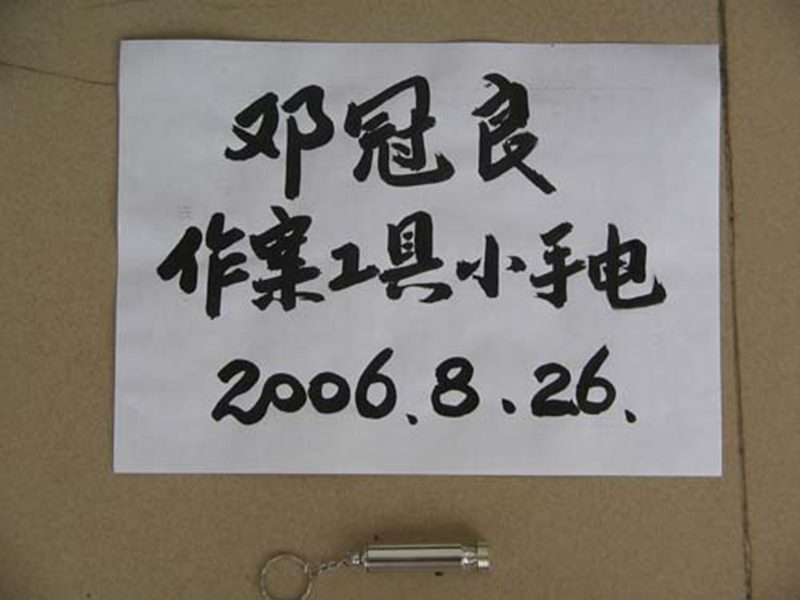 邓冠良
作案工具小手电
2006.8.26.